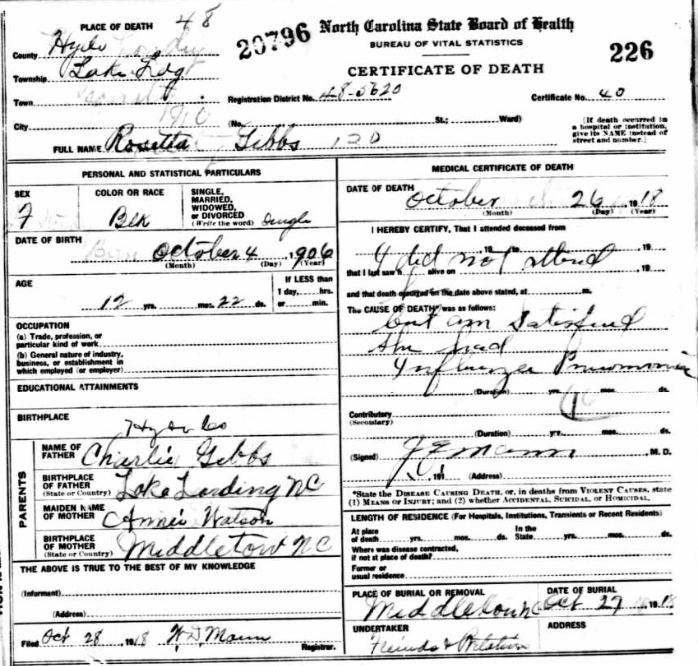 PLACE OF DEATH 48
20796
North Carolina State Board of Health
BUREAU OF VITAL STATISTICS
226
CERTIFICATE OF DEATH
County Hyde
Township Lake Ldg
Town
Registration District No. 48-5620 Certificate No. 40
City (No. St.; Ward)
[If death occurred in a hospital or institution, give its NAME instead of street and number.]
FULL NAME Rosetta Gibbs
PERSONAL AND STATISTICAL PARTICULARS
SEX F
COLOR OR RACE Blk
SINGLE, MARRIED, WIDOWED, or DIVORCED (Write the word) Single
DATE OF BIRTH October 4 1906
(Month) (Day) (Year)
AGE 12 yrs. mos. 22 ds.
If LESS than 1 day, hrs. or min.
OCCUPATION
(a) Trade, profession, or particular kind of work
(b) General nature of industry, business, or establishment in which employed (or employer)
EDUCATIONAL ATTAINMENTS
BIRTHPLACE Hyde Co
PARENTS
NAME OF FATHER Charlie Gibbs
BIRTHPLACE OF FATHER (State or Country) Lake Landing NC
MAIDEN NAME OF MOTHER Annie Watson
BIRTHPLACE OF MOTHER (State or Country) Middletown NC
THE ABOVE IS TRUE TO THE BEST OF MY KNOWLEDGE
(Informant)
(Address)
Filed Oct 28, 1918 W. D. Mann Registrar.
MEDICAL CERTIFICATE OF DEATH
DATE OF DEATH October 26 1918
(Month) (Day) (Year)
I HEREBY CERTIFY, That I attended deceased from
19 to 19
I did not attend
that I last saw h alive on 19
and that death occurred on the date above stated, at m.
The CAUSE OF DEATH* was as follows:
but am satisfied
she had
Influenza Pneumonia
(Duration) yrs. mos. ds.
Contributory (Secondary)
(Duration) yrs. mos. ds.
(Signed) J E Mann M. D.
, 191 (Address)
*State the DISEASE CAUSING DEATH, or, in deaths from VIOLENT CAUSES, state (1) MEANS OF INJURY; and (2) whether ACCIDENTAL, SUICIDAL, or HOMICIDAL.
LENGTH OF RESIDENCE (For Hospitals, Institutions, Transients or Recent Residents)
At place of death yrs. mos. ds. In the State yrs. mos. ds.
Where was disease contracted, if not at place of death?
Former or usual residence
PLACE OF BURIAL OR REMOVAL Middletown
DATE OF BURIAL Oct 27 1918
UNDERTAKER Friends & Relatives
ADDRESS